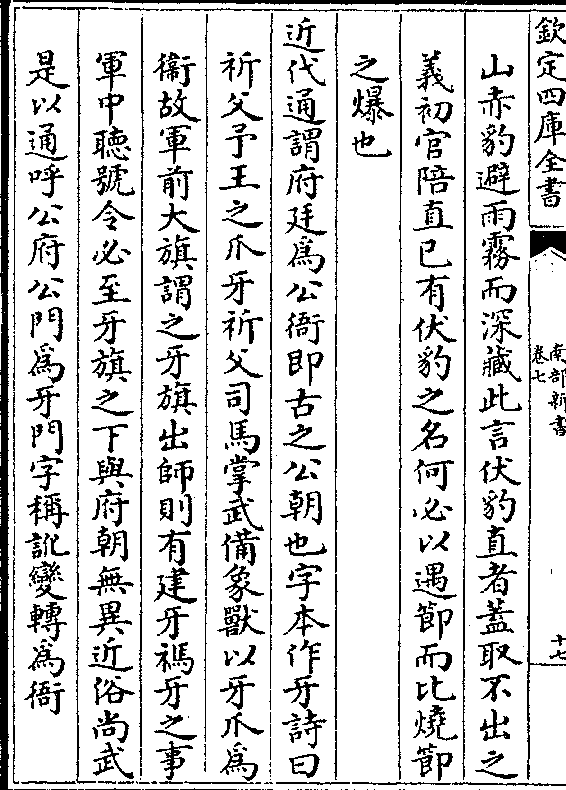 欽定四庫全書
南部新書
卷七
十七
山赤豹避雨霧而深藏此言伏豹直者蓋取不出之
義初官陪直已有伏豹之名何必以遇節而比燒節
之爆也
近代通謂府廷為公衙即古之公朝也字本作牙詩曰
祈父予王之爪牙祈父司馬掌武備象獸以牙爪為
衞故軍前大旗謂之牙旗出師則有建牙禡牙之事
軍中聽號令必至牙旗之下與府朝無異近俗尚武
是以通呼公府公門為牙門字稱訛變轉為衙